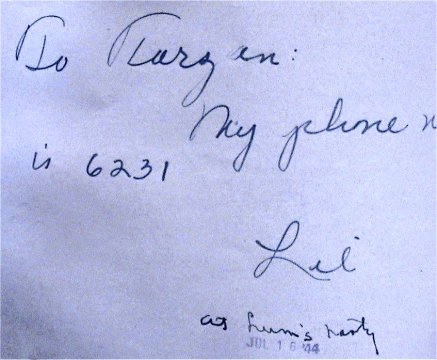 To Tarzan:
My phone n
is 6231
Lil
at Lum's party
JUL 16 '44